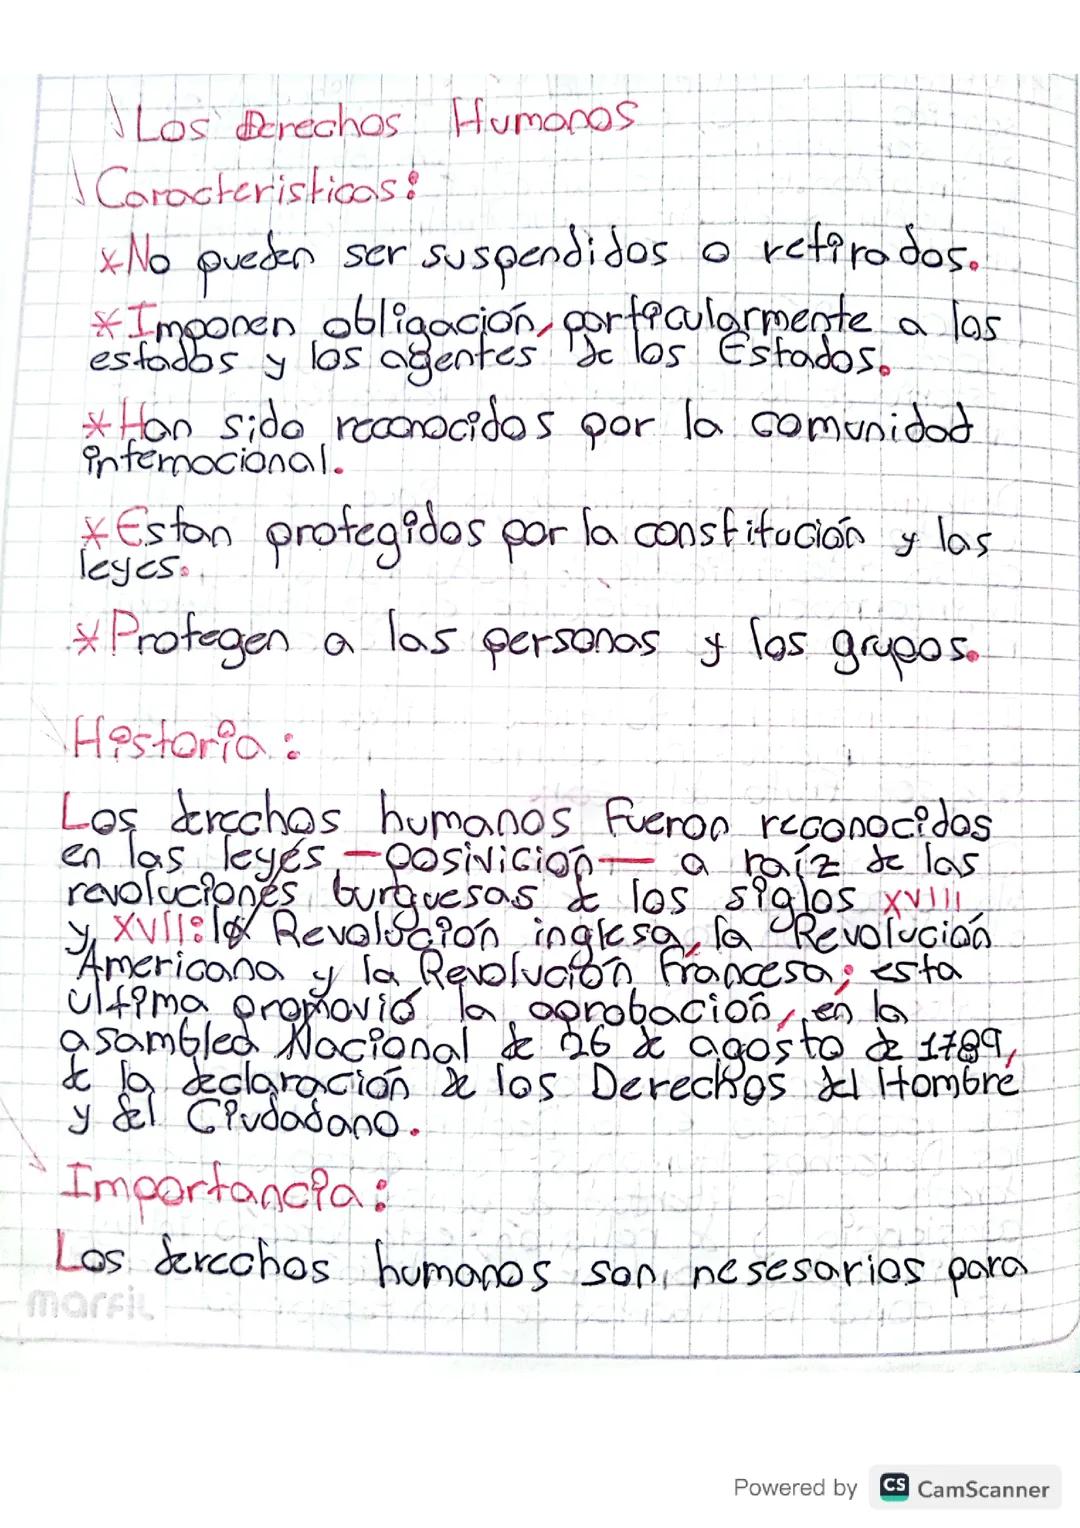 Los Derechos Humanos
Caracteristicas:
*No pueden ser suspendidos o retirados.
*Imponen obligación, particularmente a los
estados y los agentes de los Estados.
*Han sido reconocidos por la comunidad
internacional.
*Estan protegidos por la constitución y las
leyes.
*Protegen a las personas y los grupos.
Historia:
Los derechos humanos Fueron reconocidos
en las leyes —posivición— a raíz de las
revoluciones burguesas de los siglos XVIII
y XVII: la Revolución inglesa, la Revolución
Americana y la Revolución francesa; esta
última promovió la aprobación, en la
asamblea Nacional de 26 de agosto de 1789,
de la declaración de los Derechos del Hombre
y del Ciudadano.
Importancia:
Los derechos humanos son nesesarios para
marfil
Powered by CS CamScanner